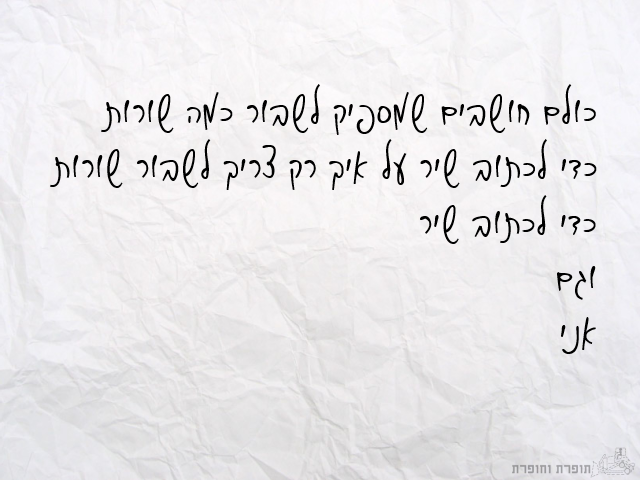 כולם חושבים שמספיק לשבור כמה שורות
כדי לכתוב שיר על איך רק צריך לשבור שורות
כדי לכתוב שיר
וגם
אני
תופרת וחופרת